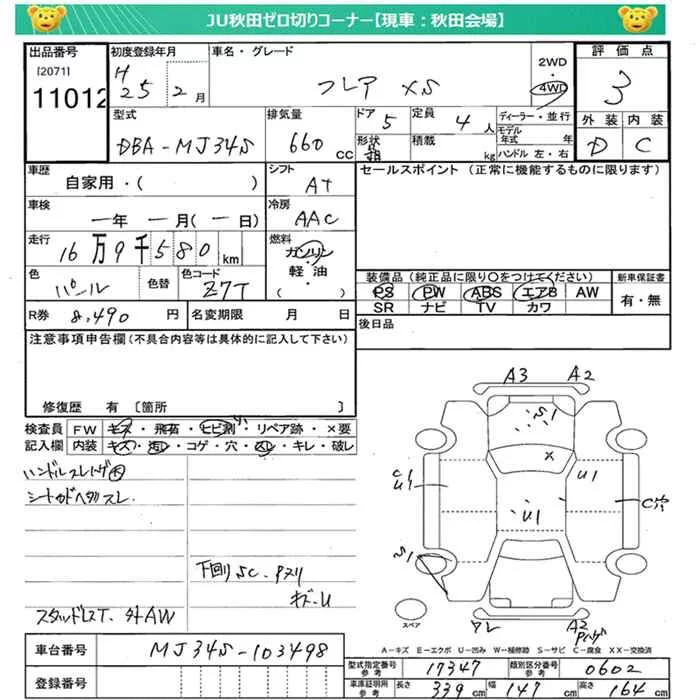 JU秋田ゼロ切りコーナー【現車：秋田会場】
出品番号 [2071] 11012
初度登録年月 H25 2月
車名・グレード フレア XS
2WD 4WD
評価点 3
外装 D 内装 C
型式 DBA-MJ34S
排気量 660 CC
ドア 5 形状
定員 4人 積載 kg
ディーラー・並行
モデル年式 年
ハンドル 左・右
車歴 自家用・( )
シフト AT
セールスポイント (正常に機能するものに限ります)
車検 ー年 ー月(ー日)
冷房 AAC
走行 16万9千580km
燃料 ガソリン・軽油・( )
色 パール 色替 色コード Z7T
装備品 (純正品に限り○をつけてください)
PS PW ABS エアB AW
SR ナビ TV カワ
新車保証書 有・無
R券 8,490円 名変期限 月 日
後日品
注意事項申告欄 (不具合内容等は具体的に記入して下さい)
修復歴 有 [箇所 ]
検査員記入欄
FW キズ・飛石・ヒビ割・リペア跡・×要
内装 キズ・汚レ・コゲ・穴・スレ・キレ・破レ
ハンドルスレハゲ大
シート
下回りSC・
スタッドレスT.
A3 A2
S1
×
U1
U1
U1
C穴
S1
A2
スペア
A-キズ E-エクボ U-凹み W-補修跡 S-サビ C-腐食 XX-交換済
車台番号 MJ34S-103498
登録番号
型式指定番号 参考 17347 類別区分番号 参考 0602
車庫証明用 参考 長さ 339cm 幅 147cm 高さ 164cm